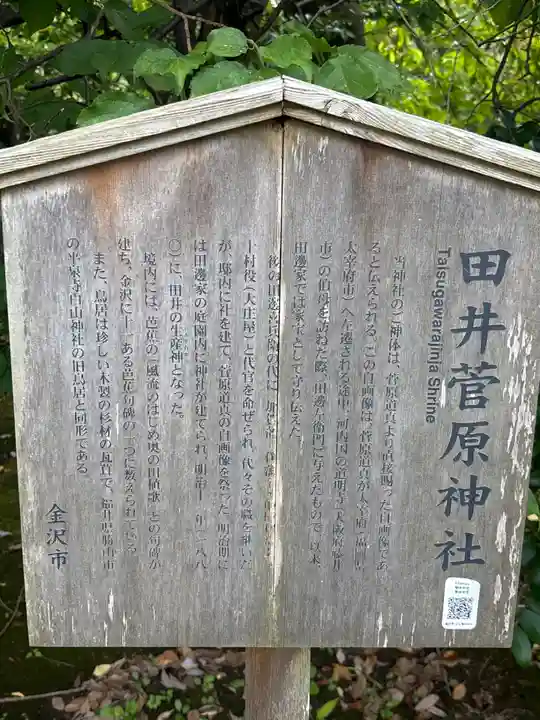 田井菅原神社
Taisugawarajinja Shrine
当神社のご神体は、菅原道真より直接賜った自画像であ
ると伝えられる。この自画像は、菅原道真が太宰府(福岡県
太宰府市)へ左遷される途中、河内国の道明寺(大阪府藤井
市)の伯母を訪ねた際、田邊左衛門に与えたもので、以来
田邊家では家宝として守り伝えた。
後の田邊
の代に、加賀藩
十村役(大庄屋)と代官を命ぜられ、代々その職を継いだ
が、邸内に社を建て、菅原道真の自画像を祭った。明治期に
は田邊家の庭園内に神社が建てられ、明治十一年(一八八
〇)に、田井の生産神となった。
境内には、芭蕉の「風流のはじめ奥の田植歌」の句碑が
建ち、金沢に十一ある芭蕉句碑の一つに数えられている。
また、鳥居は珍しい木製の杉材の瓦葺で、福井県勝山市
の平泉寺白山神社の旧鳥居と同形である。
金沢市